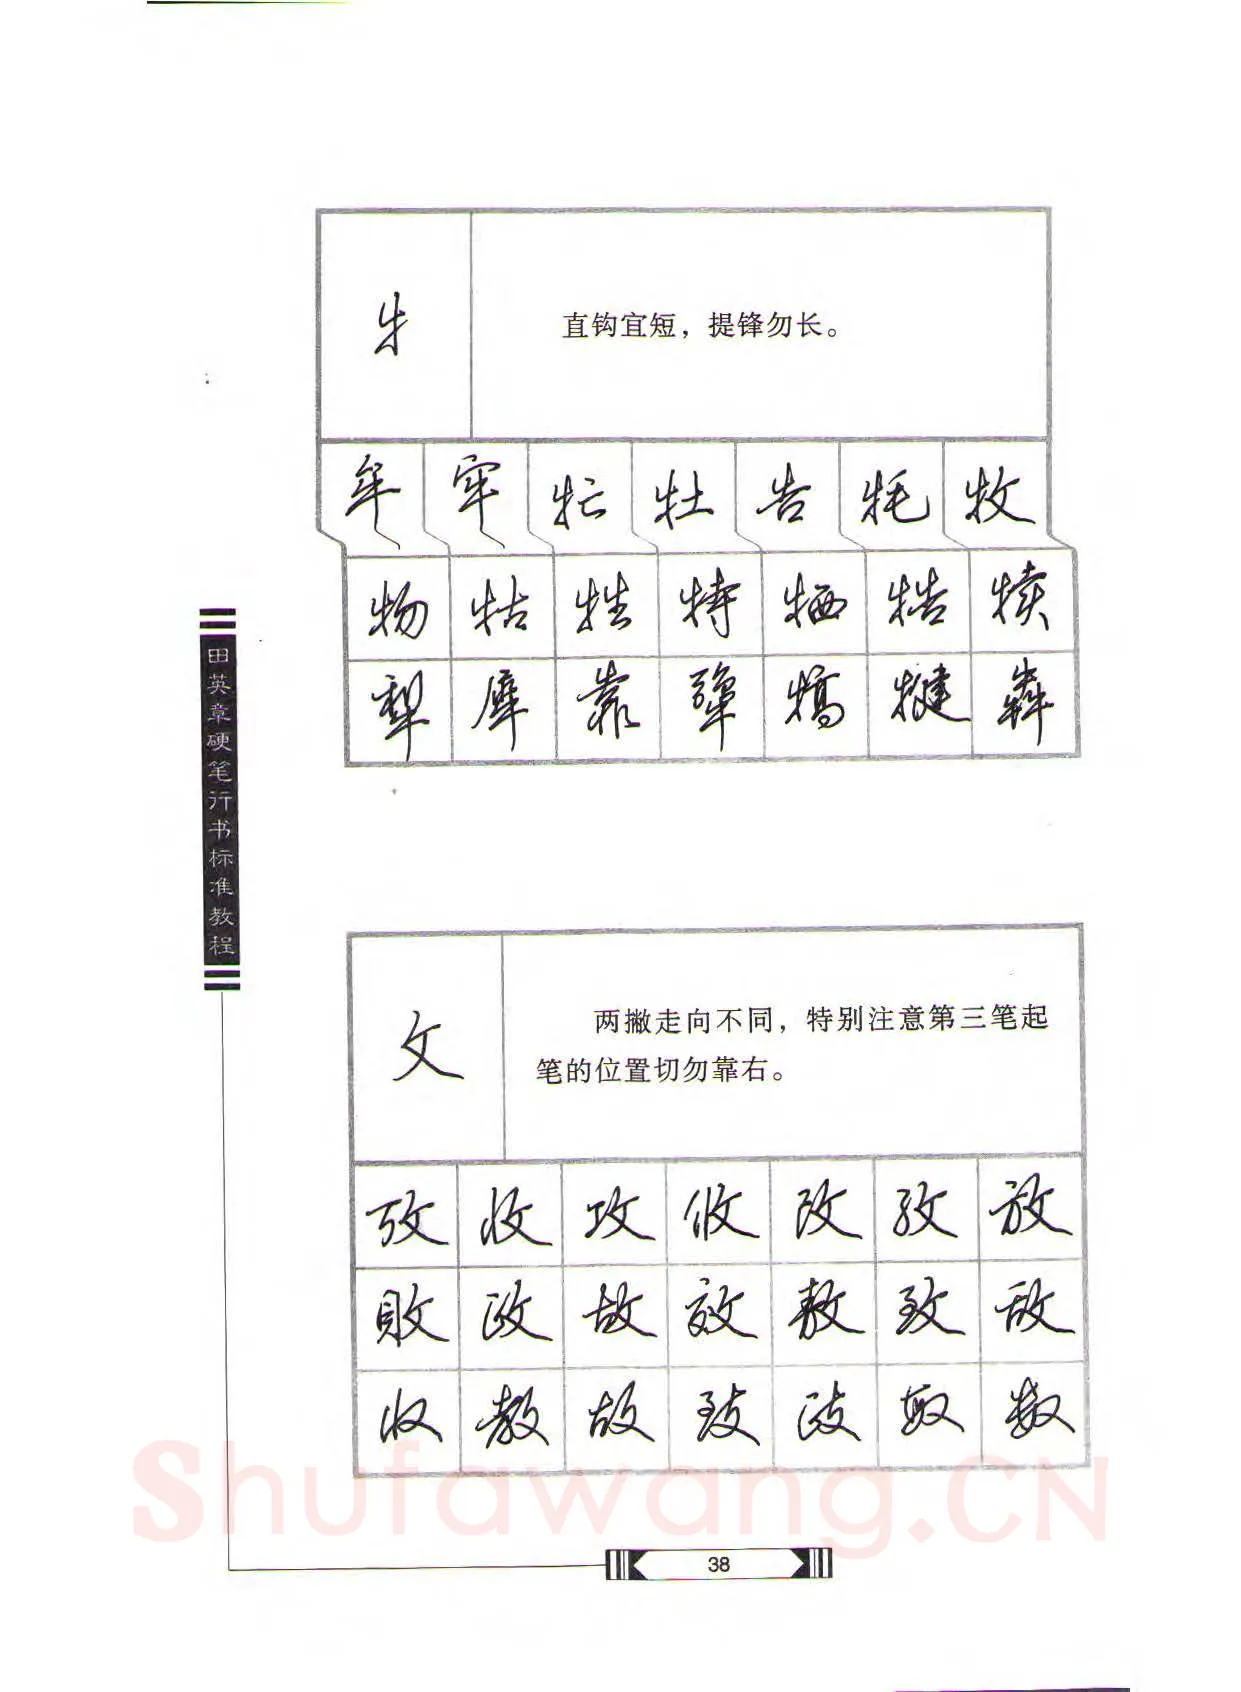 牜
直钩宜短，提锋勿长。
牟 牢 牤 牡 告 牦 牧
物 牯 牲 特 牺 牿 犊
犁 犀 靠 犟 犒 犍 犇
攵
两撇走向不同，特别注意第三笔起
笔的位置切勿靠右。
攷 收 攻 攸 改 孜 放
敗 政 故 效 敖 致 敌
收 教 故 致 政 数
田英章硬笔行书标准教程
38
Shufawang.CN